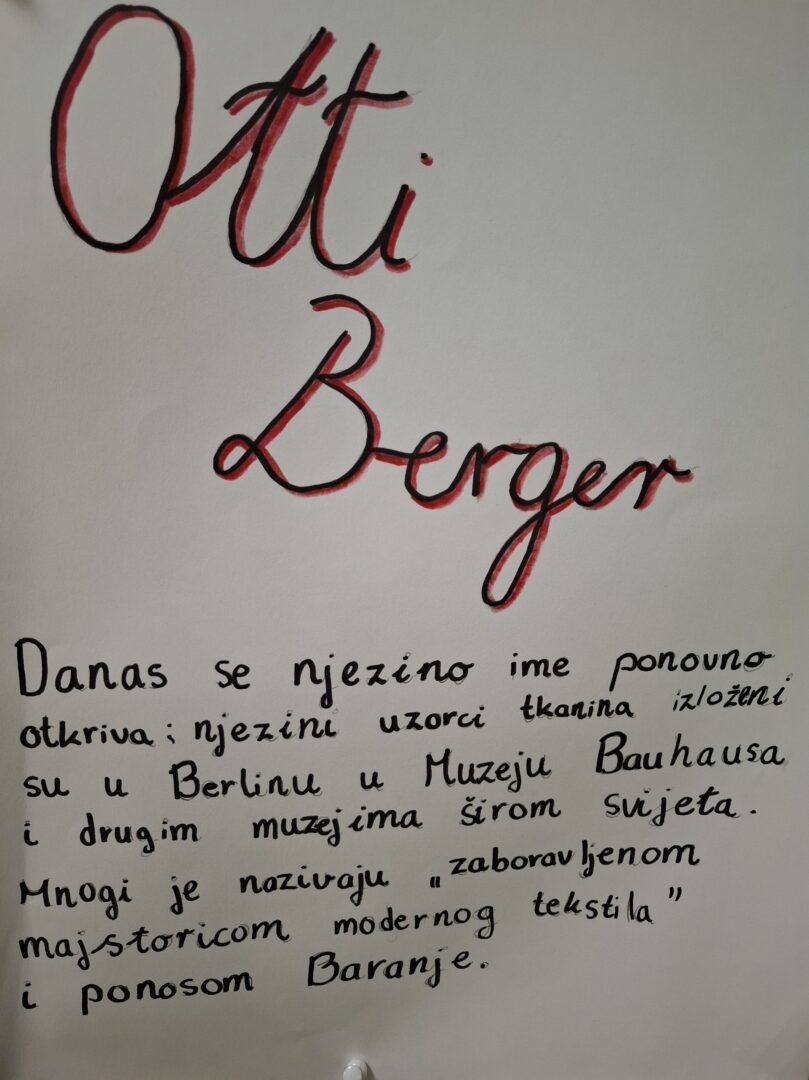 Otti
Berger
Danas se njezino ime ponovno
otkriva; njezini uzorci tkanina izloženi
su u Berlinu u Muzeju Bauhausa
i drugim muzejima širom svijeta.
Mnogi je nazivaju „zaboravljenom
majstoricom modernog tekstila”
i ponosom Baranje.